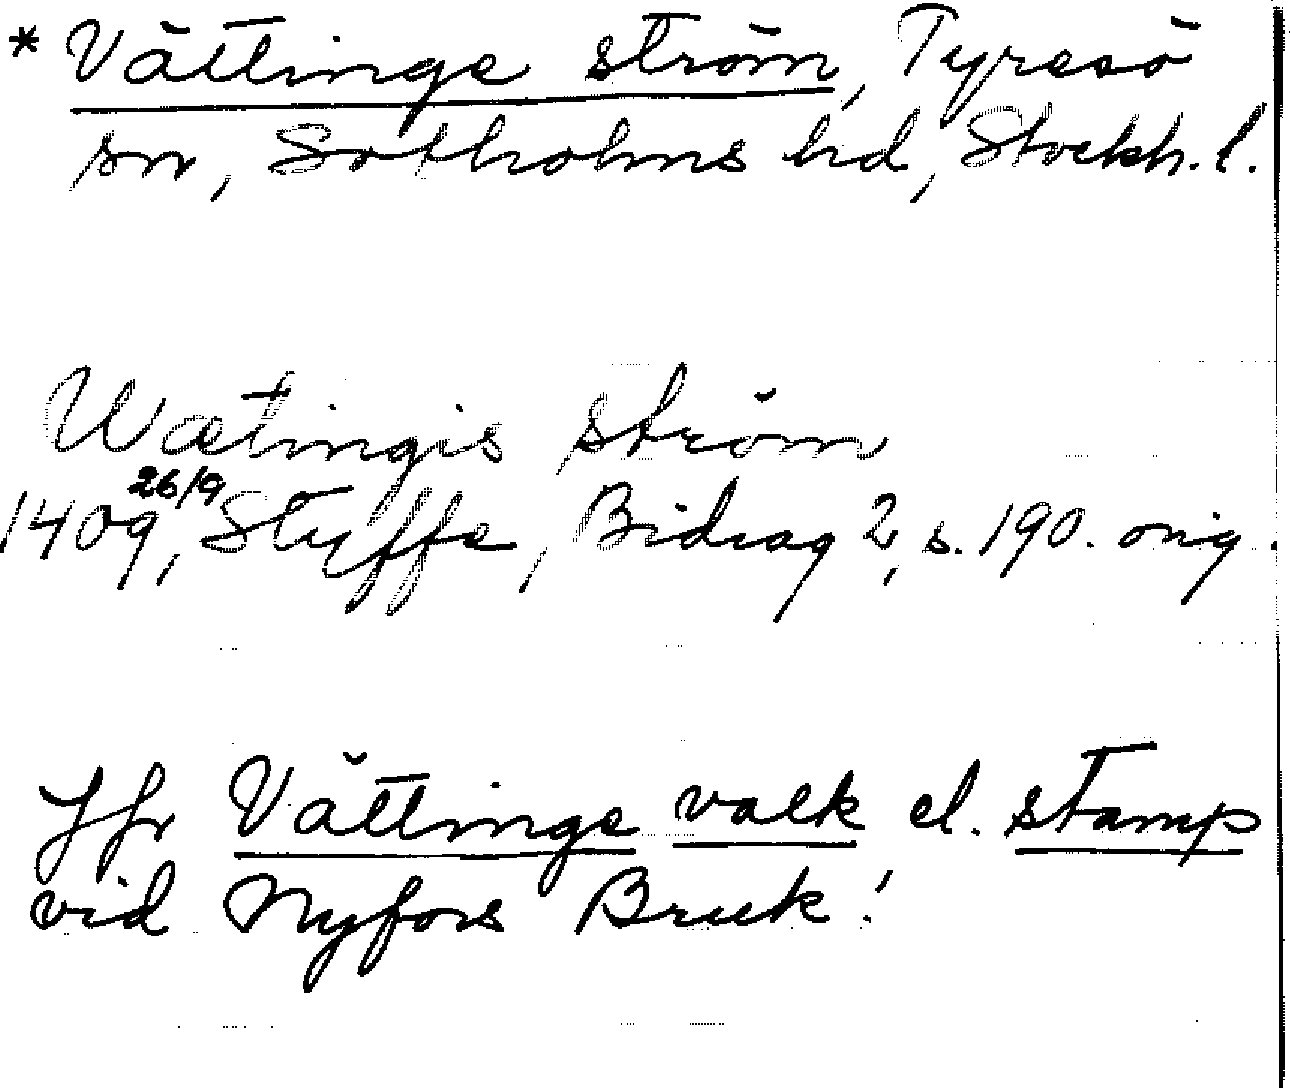 * Vättinge ström, Tyresö
sn, Sotholms hd, Stockh. l.
Wætingis ström
1409 26/9, Styffe, Bidrag 2, s. 190. orig.
Jfr Vättinge valk el. stamp
vid Nyfors Bruk!